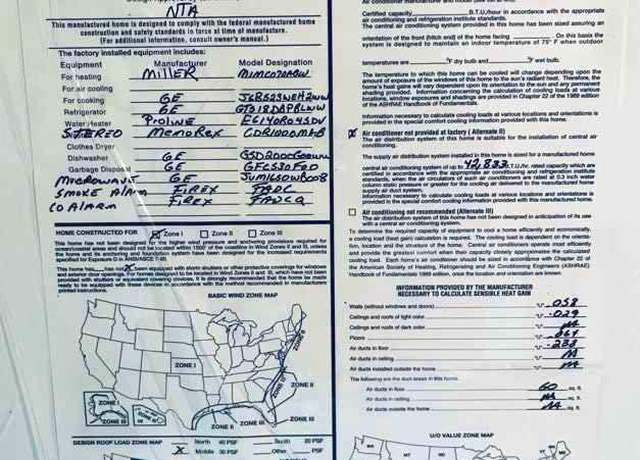 NTA
This manufactured home is designed to comply with the federal manufactured home
construction and safety standards in force at time of manufacture.
(For additional information, consult owner's manual.)
The factory installed equipment includes:
Equipment Manufacturer Model Designation
For heating Miller
For air cooling
For cooking GE
Refrigerator GE
Water Heater Proline
STEREO Memorex
Clothes Dryer
Dishwasher GE
Garbage Disposal GE GFC530F
MICROWAVE GE
SMOKE ALARM FIREX
CO ALARM FIREX
HOME CONSTRUCTED FOR Zone I Zone II Zone III
This home has not been designed for the higher wind pressure and anchoring provisions required for
ocean/coastal areas and should not be located within 1500' of the coastline in Wind Zones II and III, unless
the home and its anchoring and foundation system have been designed for the increased requirements
specified for Exposure D in ANSI/ASCE 7-88.
This home has has not X been equipped with storm shutters or other protective coverings for windows
and exterior door openings. For homes designed to be located in Wind Zones II and III, which have not been
provided with shutters or equivalent covering devices, it is strongly recommended that the home be made
ready to be equipped with these devices in accordance with the method recommended in manufacturers
printed instructions.
BASIC WIND ZONE MAP
ZONE I
ZONE II
ZONE III
ZONE I
ZONE II
ZONE III
DESIGN ROOF LOAD ZONE MAP North 40 PSF South 20 PSF
X Middle 30 PSF Other PSF
Certified capacity B.T.U./hour in accordance with the appropriate
air conditioning and refrigeration institute standards.
The central air conditioning system provided in this home has been sized assuming an
orientation of the front (hitch end) of the home facing . On this basis the
system is designed to maintain an indoor temperature of 75° F when outdoor
temperatures are °F dry bulb and °F wet bulb.
The temperature to which this home can be cooled will change depending upon the
amount of exposure of the windows of this home to the sun's radiant heat. Therefore, the
home's heat gains will vary dependent upon its orientation to the sun and any permanent
shading provided. Information concerning the calculation of cooling loads at various
locations, window exposures and shadings are provided in Chapter 22 of the 1989 edition
of the ASHRAE Handbook of Fundamentals.
Information necessary to calculate cooling loads at various locations and orientations is
provided in the special comfort cooling information provided with this home.
X Air conditioner not provided at factory (Alternate II)
The air distribution system of this home is suitable for the installation of central air
conditioning.
The supply air distribution system installed in this home is sized for a manufactured home
central air conditioning system of up to 42,833 B.T.U./hr. rated capacity which are
certified in accordance with the appropriate air conditioning and refrigeration institute
standards, when the air circulators of such air conditioners are rated at 0.3 inch water
column static pressure or greater for the cooling air delivered to the manufactured home
supply air duct system.
Information necessary to calculate cooling loads at various locations and orientations is
provided in the special comfort cooling information provided with this manufactured home.
Air conditioning not recommended (Alternate III)
The air distribution system of this home has not been designed in anticipation of its use
with a central air conditioning system.
To determine the required capacity of equipment to cool a home efficiently and economically,
a cooling load (heat gain) calculation is required. The cooling load is dependent on the orienta-
tion, location and the structure of the home. Central air conditioners operate most efficiently
and provide the greatest comfort when their capacity closely approximates the calculated
cooling load. Each home's air conditioner should be sized in accordance with Chapter 22 of
the American Society of Heating, Refrigerating and Air Conditioning Engineers (ASHRAE)
Handbook of Fundamentals 1989 edition, once the location and orientation are known.
INFORMATION PROVIDED BY THE MANUFACTURER
NECESSARY TO CALCULATE SENSIBLE HEAT GAIN
Walls (without windows and doors) "U" .058
Ceilings and roofs of light color "U" .029
Ceilings and roofs of dark color "U" NA
Floors "U"
Air ducts in floor "U" .238
Air ducts in ceiling "U" NA
Air ducts installed outside the home "U" NA
The following are the duct areas in this home:
Air ducts in floor 60 sq. ft.
Air ducts in ceiling NA sq. ft.
Air ducts outside the home NA sq. ft.
U/O VALUE ZONE MAP